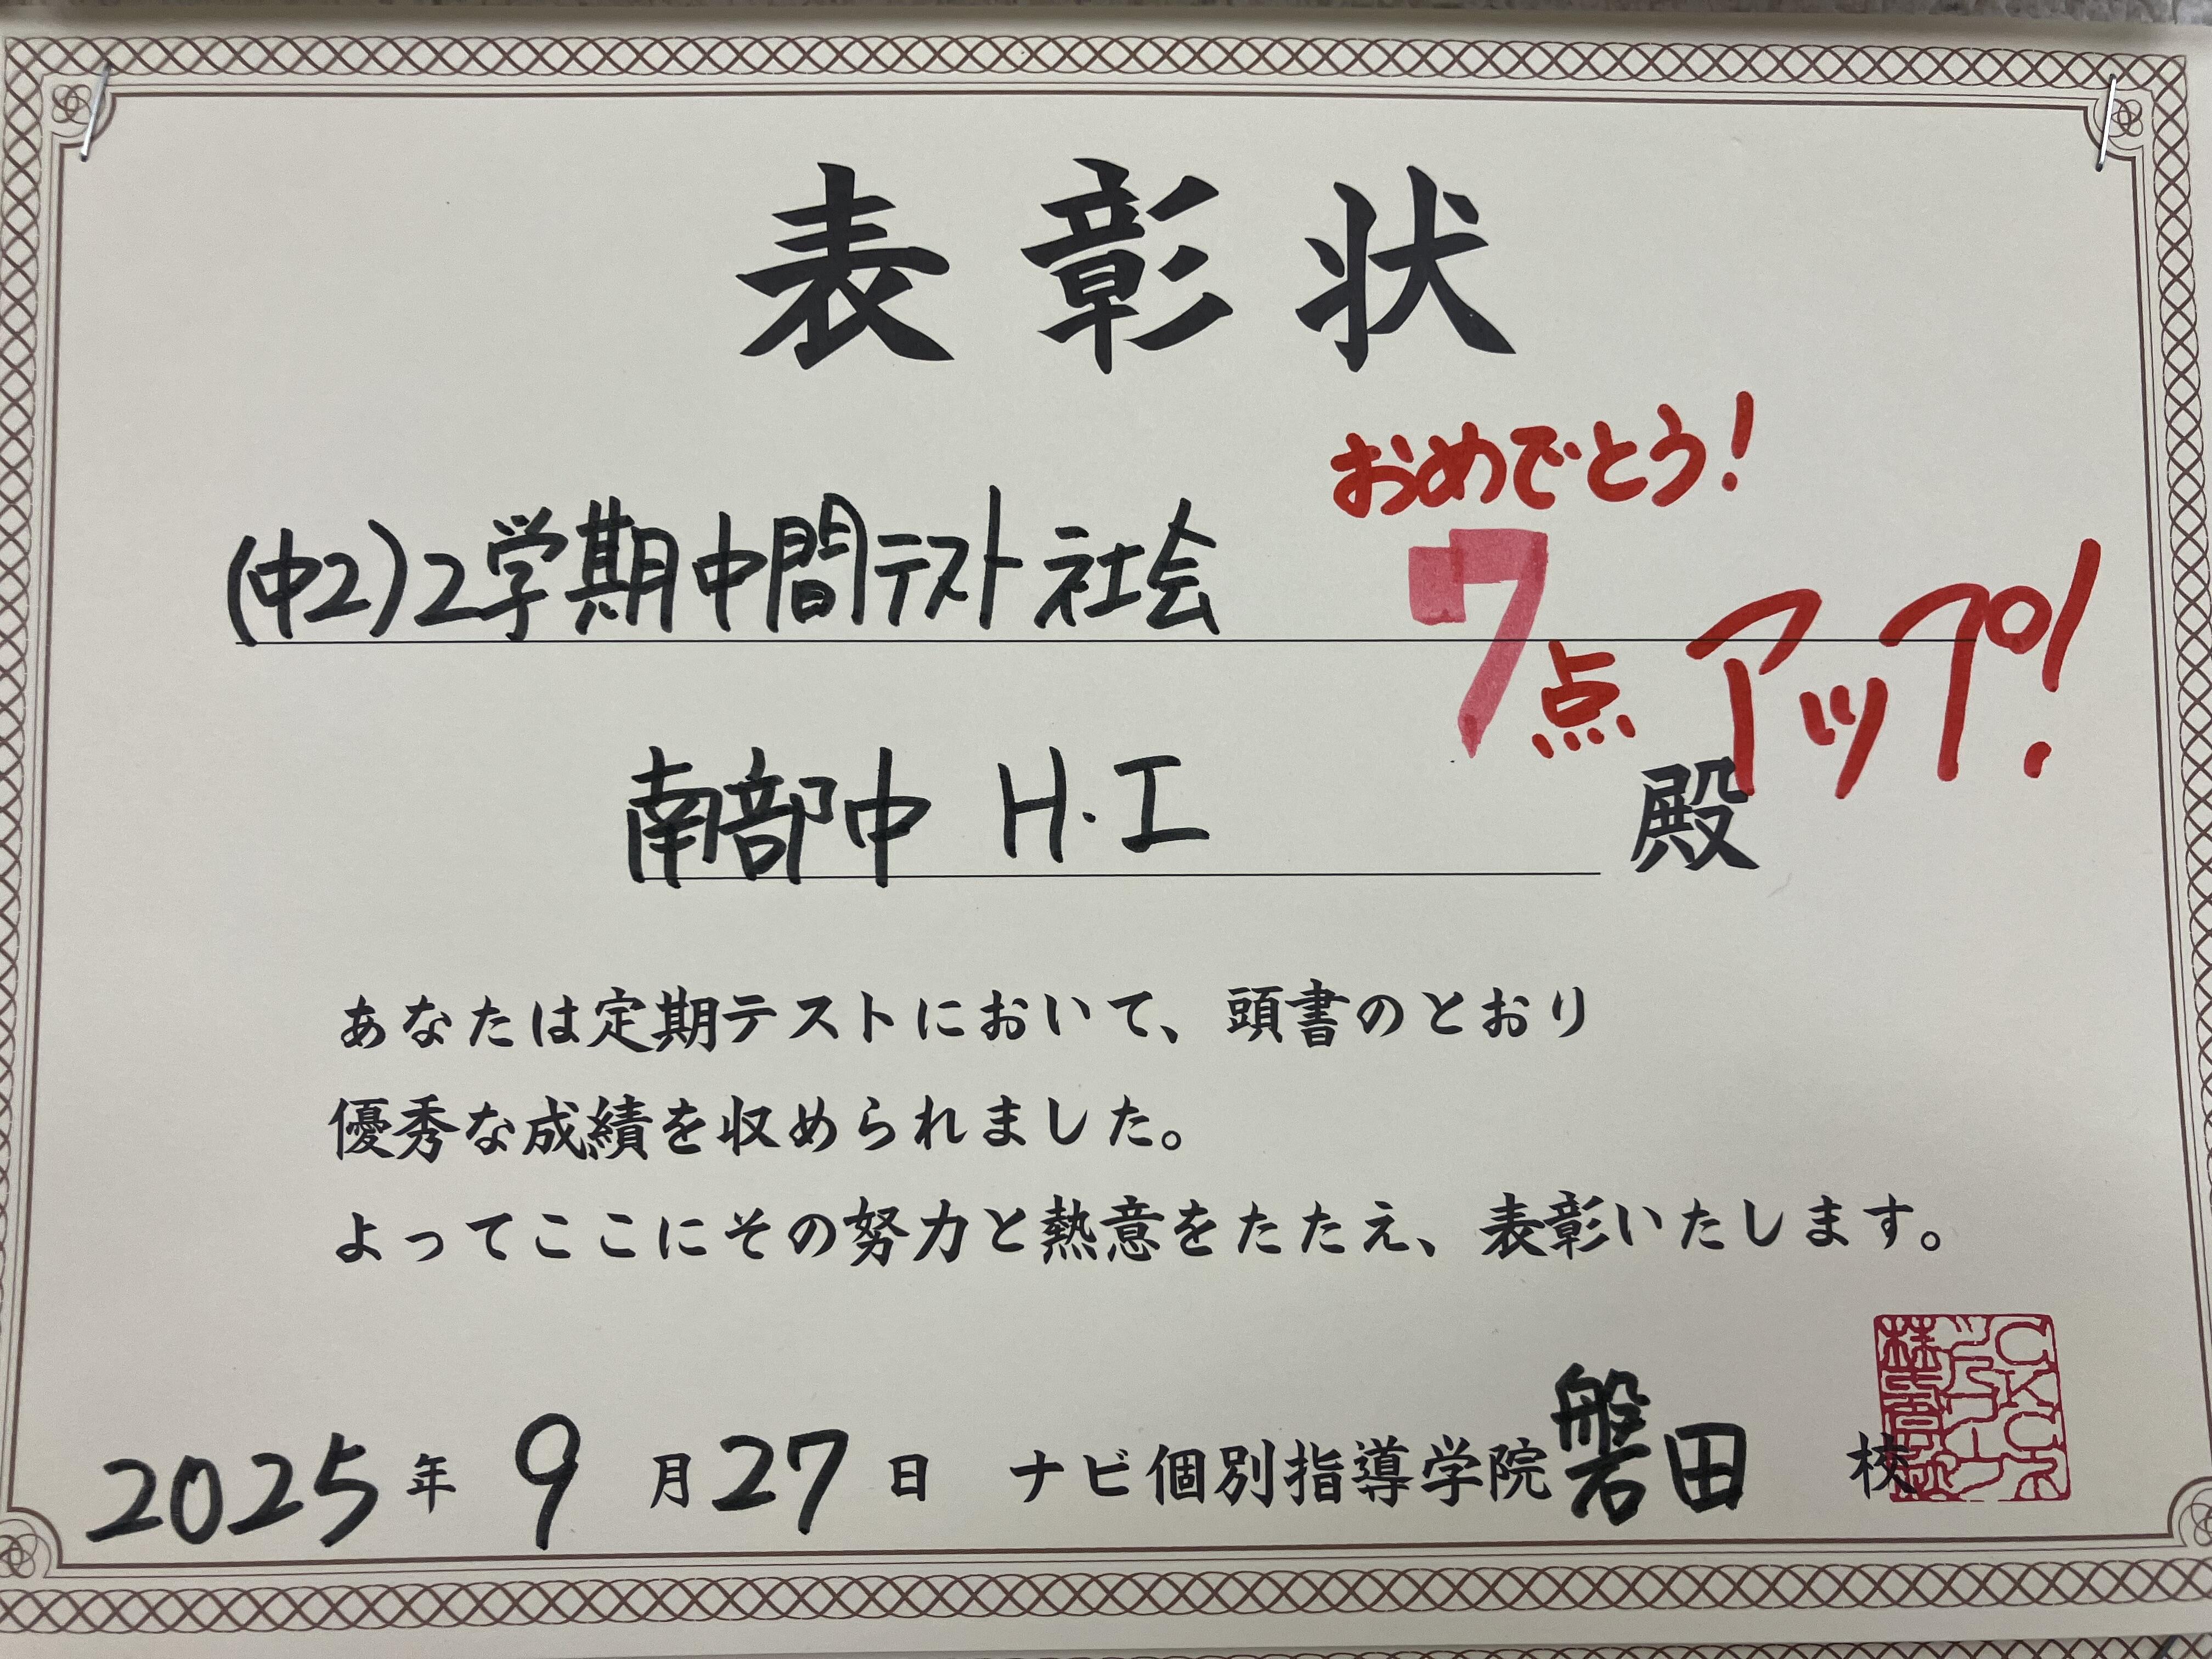 表彰状
おめでとう!
(中2)2学期中間テスト社会
7点アップ!
南部中 H.I 殿
あなたは定期テストにおいて、頭書のとおり
優秀な成績を収められました。
よってここにその努力と熱意をたたえ、表彰いたします。
2025年9月27日 ナビ個別指導学院磐田校